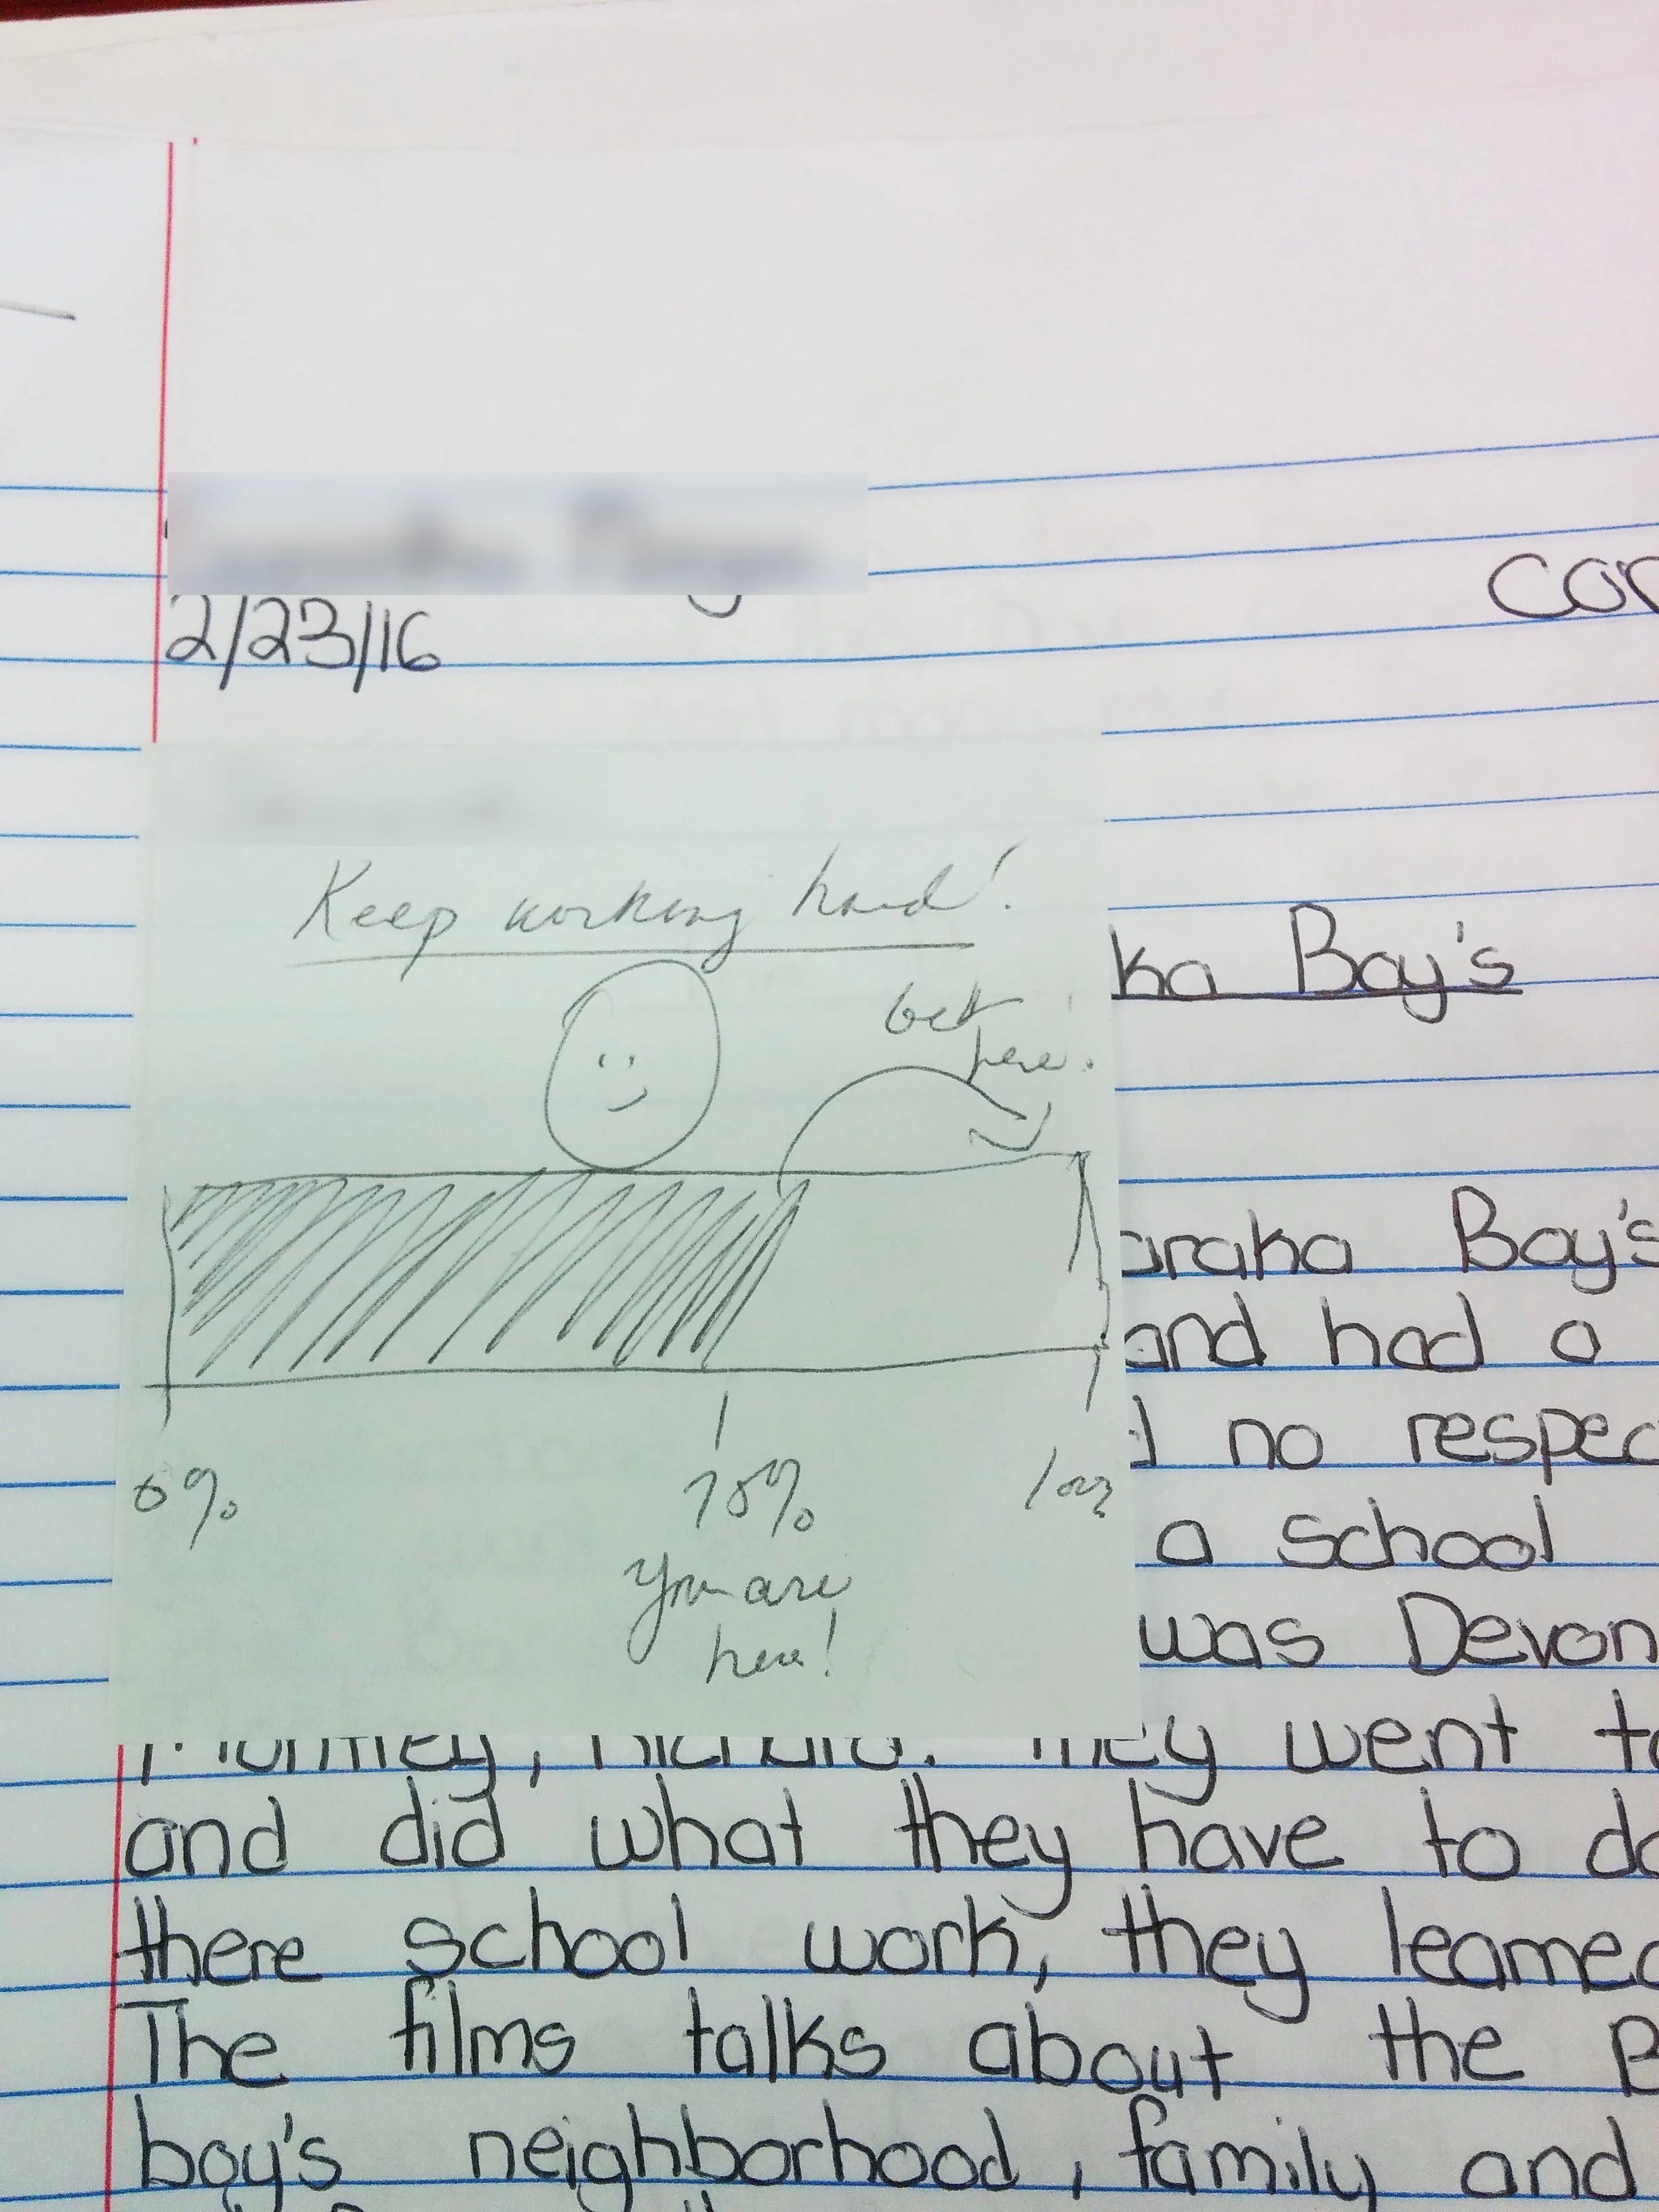 2/23/16
Keep working hard!
get
here!
0%
75%
You are
here!
Boy's
Boy's
and had a
no
a school
was Devon
They went
and did what they have to do
there school work, they learned
The films talks about the
boy's neighborhood, family and